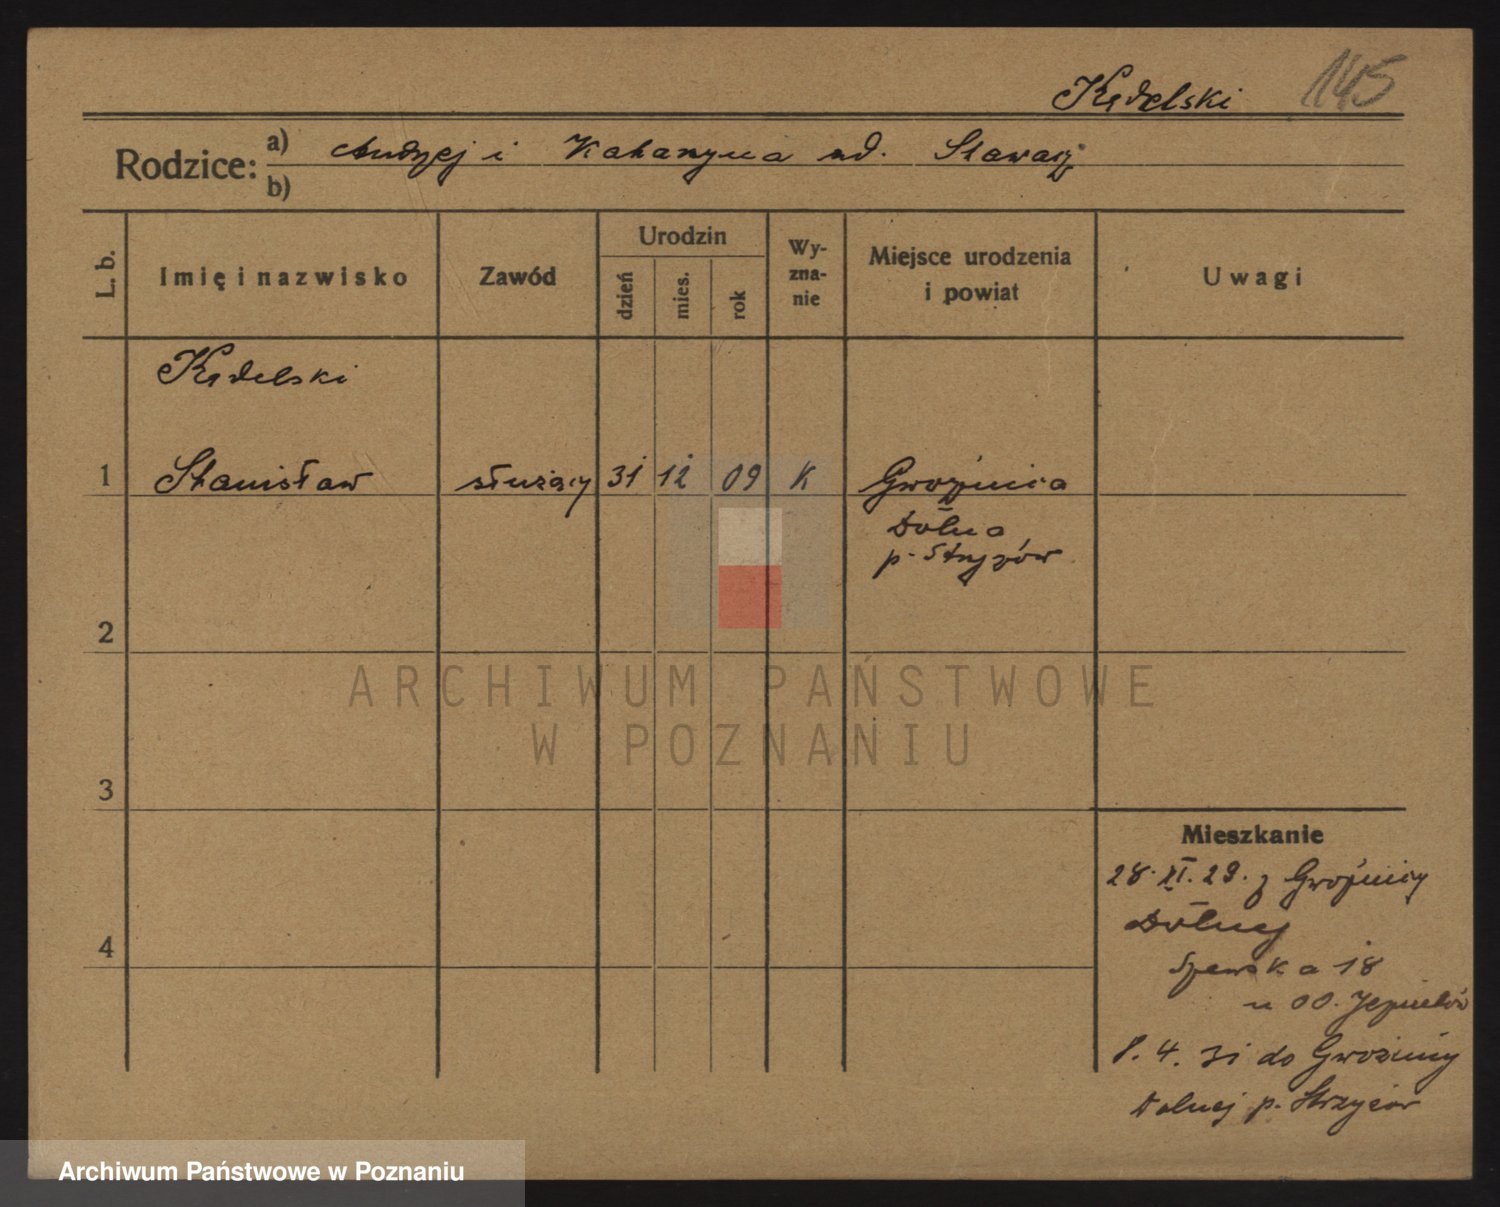 145
Kędelski
Rodzice: a) Andrzej i Katarzyna ud. Stawarz
b)
L. b.
Imię i nazwisko
Zawód
Urodzin
dzień
mies.
rok
Wy-
zna-
nie
Miejsce urodzenia
i powiat
Uwagi
Kędelski
1 Stanisław służący 31 12 09 K Gwoźnica
Dolna
p. Strzyżów
2
3
4
ARCHIWUM PAŃSTWOWE
W POZNANIU
Mieszkanie
28. XI. 29. z Gwoźnicy
Dolnej
Szewska 18
u OO. Jezuitów
8. 4. 31 do Gwoźnicy
Dolnej p. Strzyżów
Archiwum Państwowe w Poznaniu